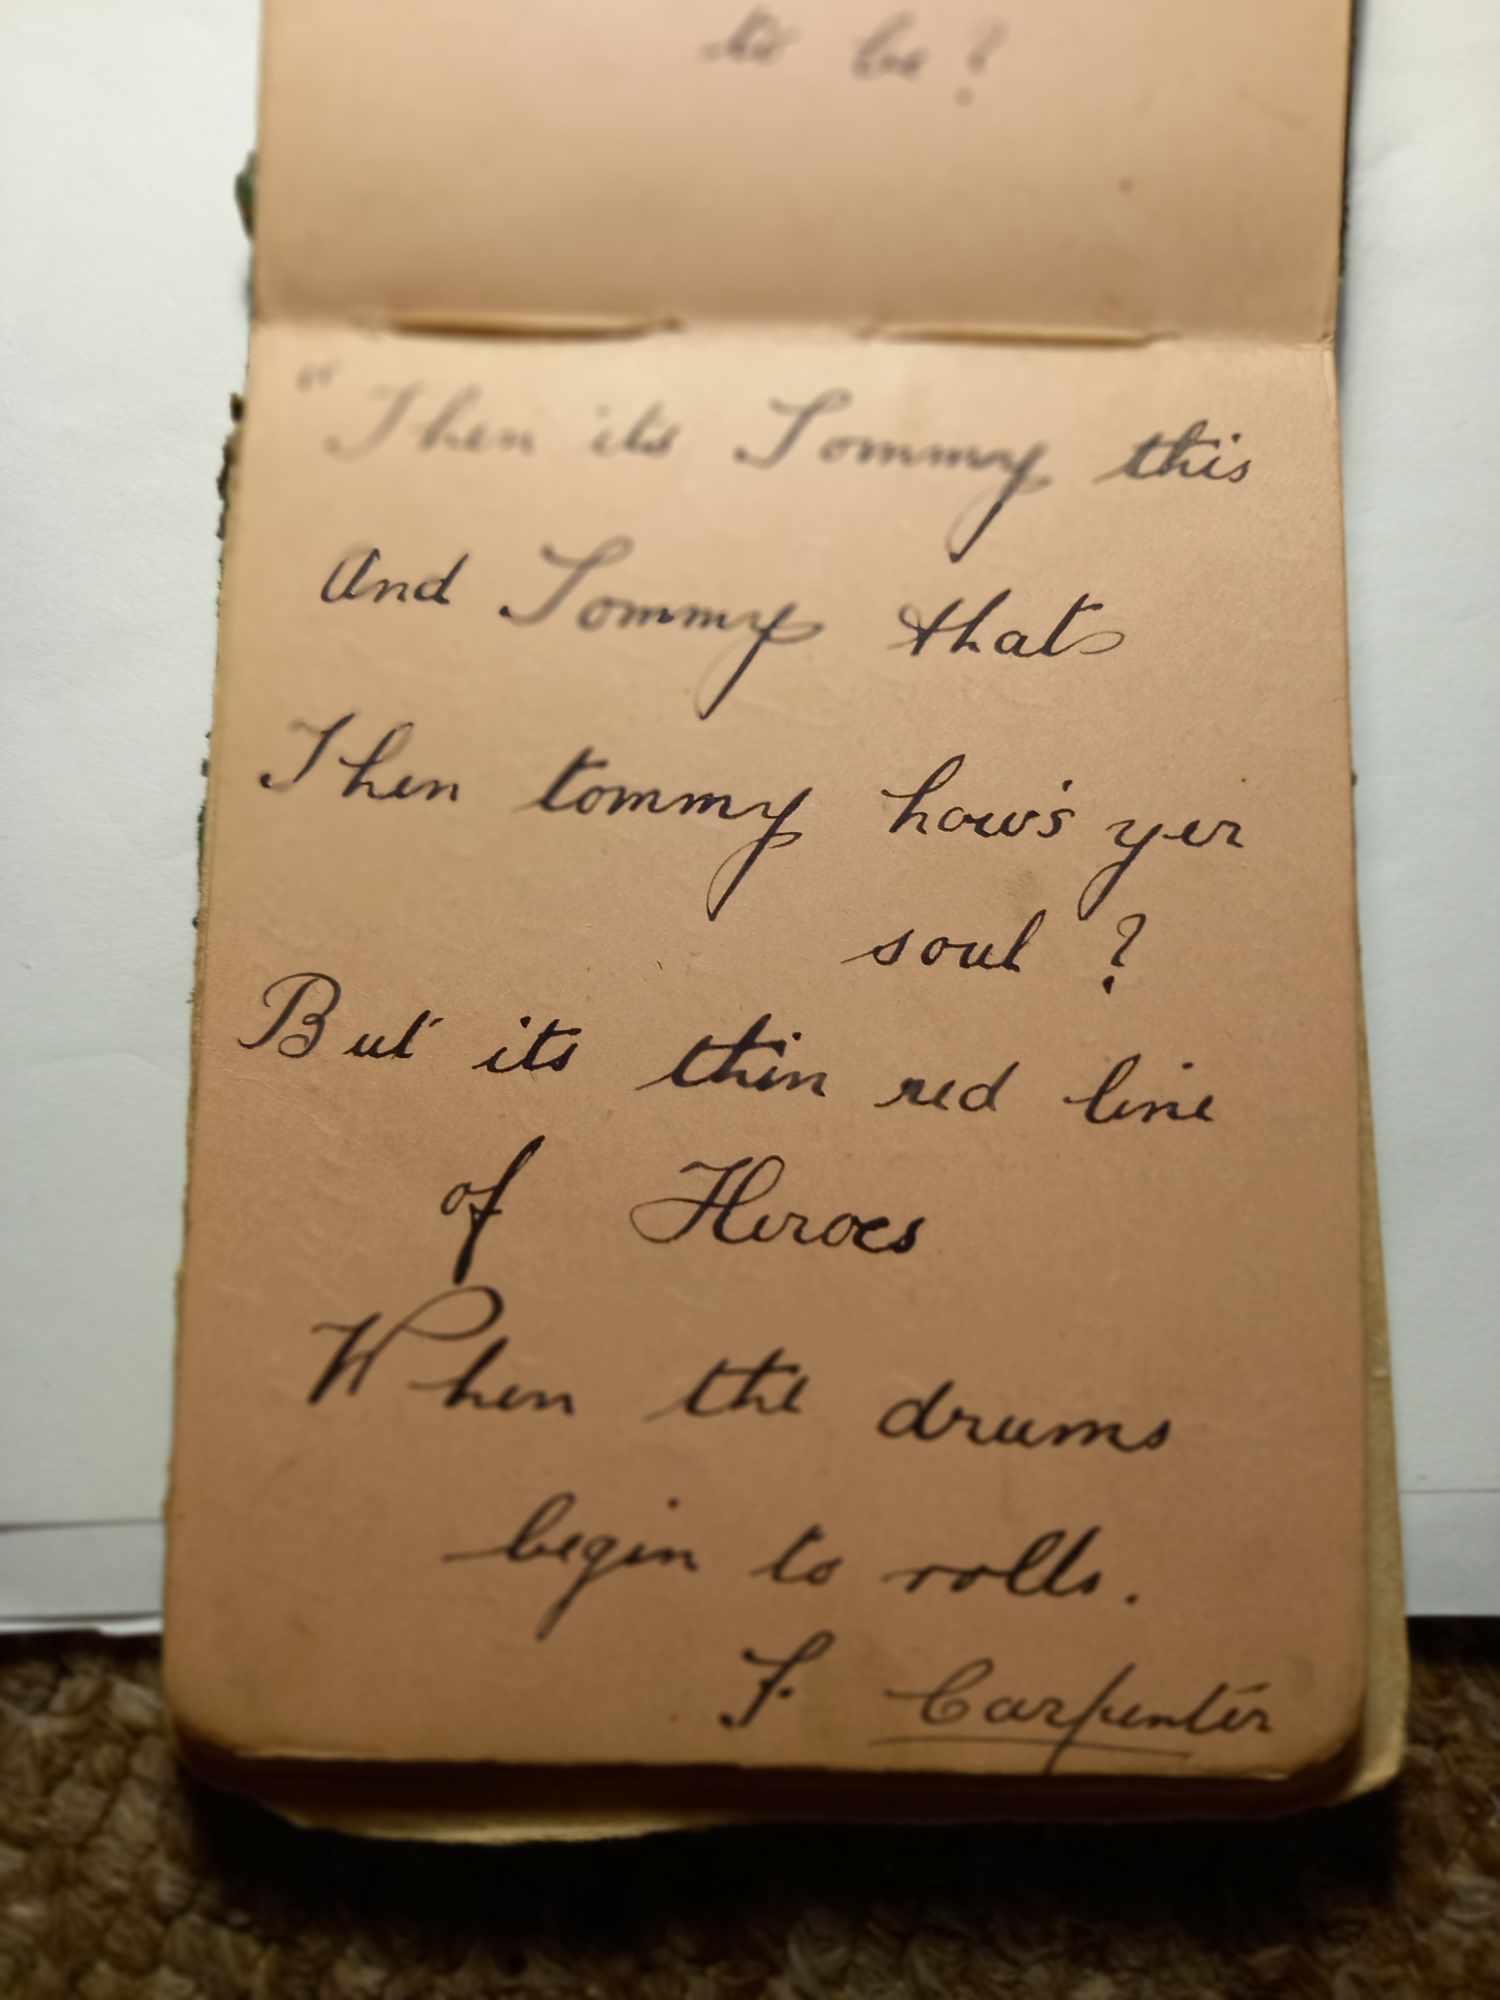 to be?
"Then its Tommy this
And Tommy that
Then tommy how's yer
soul?
But its thin red line
of Heroes
When the drums
begin to rolls.
F. Carpenter